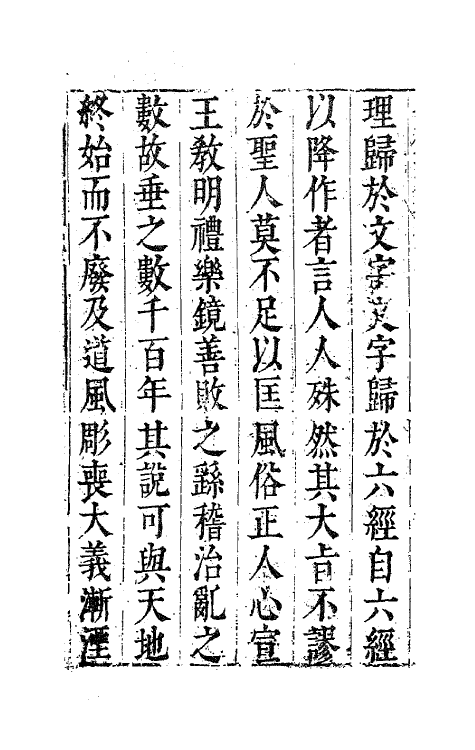 理歸於文字文字歸於六經自六經
以降作者言人人殊然其大旨不謬
於聖人莫不足以匡風俗正人心宣
王教明禮樂鏡善敗之繇稽治亂之
數故垂之數千百年其說可與天地
終始而不廢及道風彫喪大義漸湮